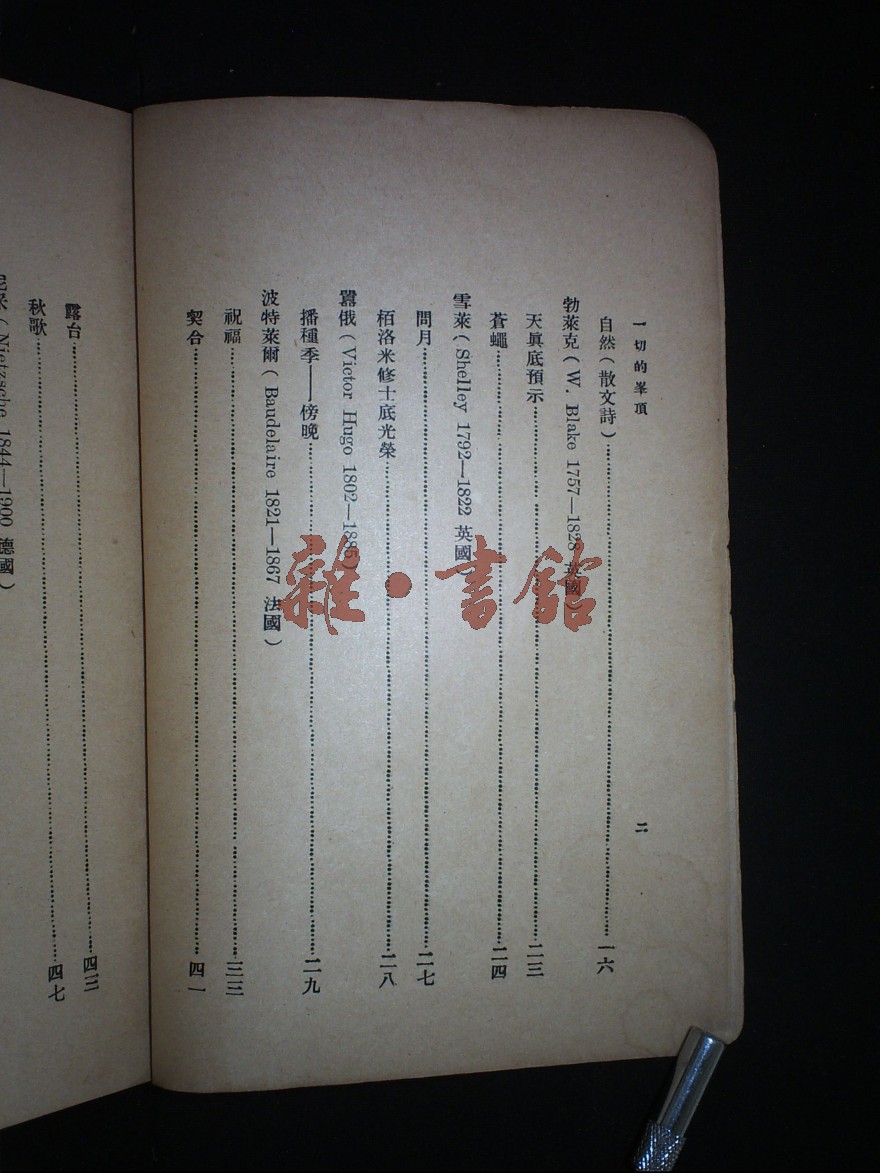 一切的峯頂
二
自然(散文詩)……一六
勃萊克(W. Blake 1757—1828 英國
天眞底預示……二三
蒼蠅……二四
雪萊(Shelley 1792—1822 英國)
問月……二七
栢洛米修士底光榮……二八
囂俄(Victor Hugo 1802—1885)
播種季——傍晚……二九
波特萊爾(Baudelaire 1821—1867 法國)
祝福……三三
契合……四一
露台……四三
秋歌……四七
尼采(Nietzsche 1844—1900 德國)
雜·書館